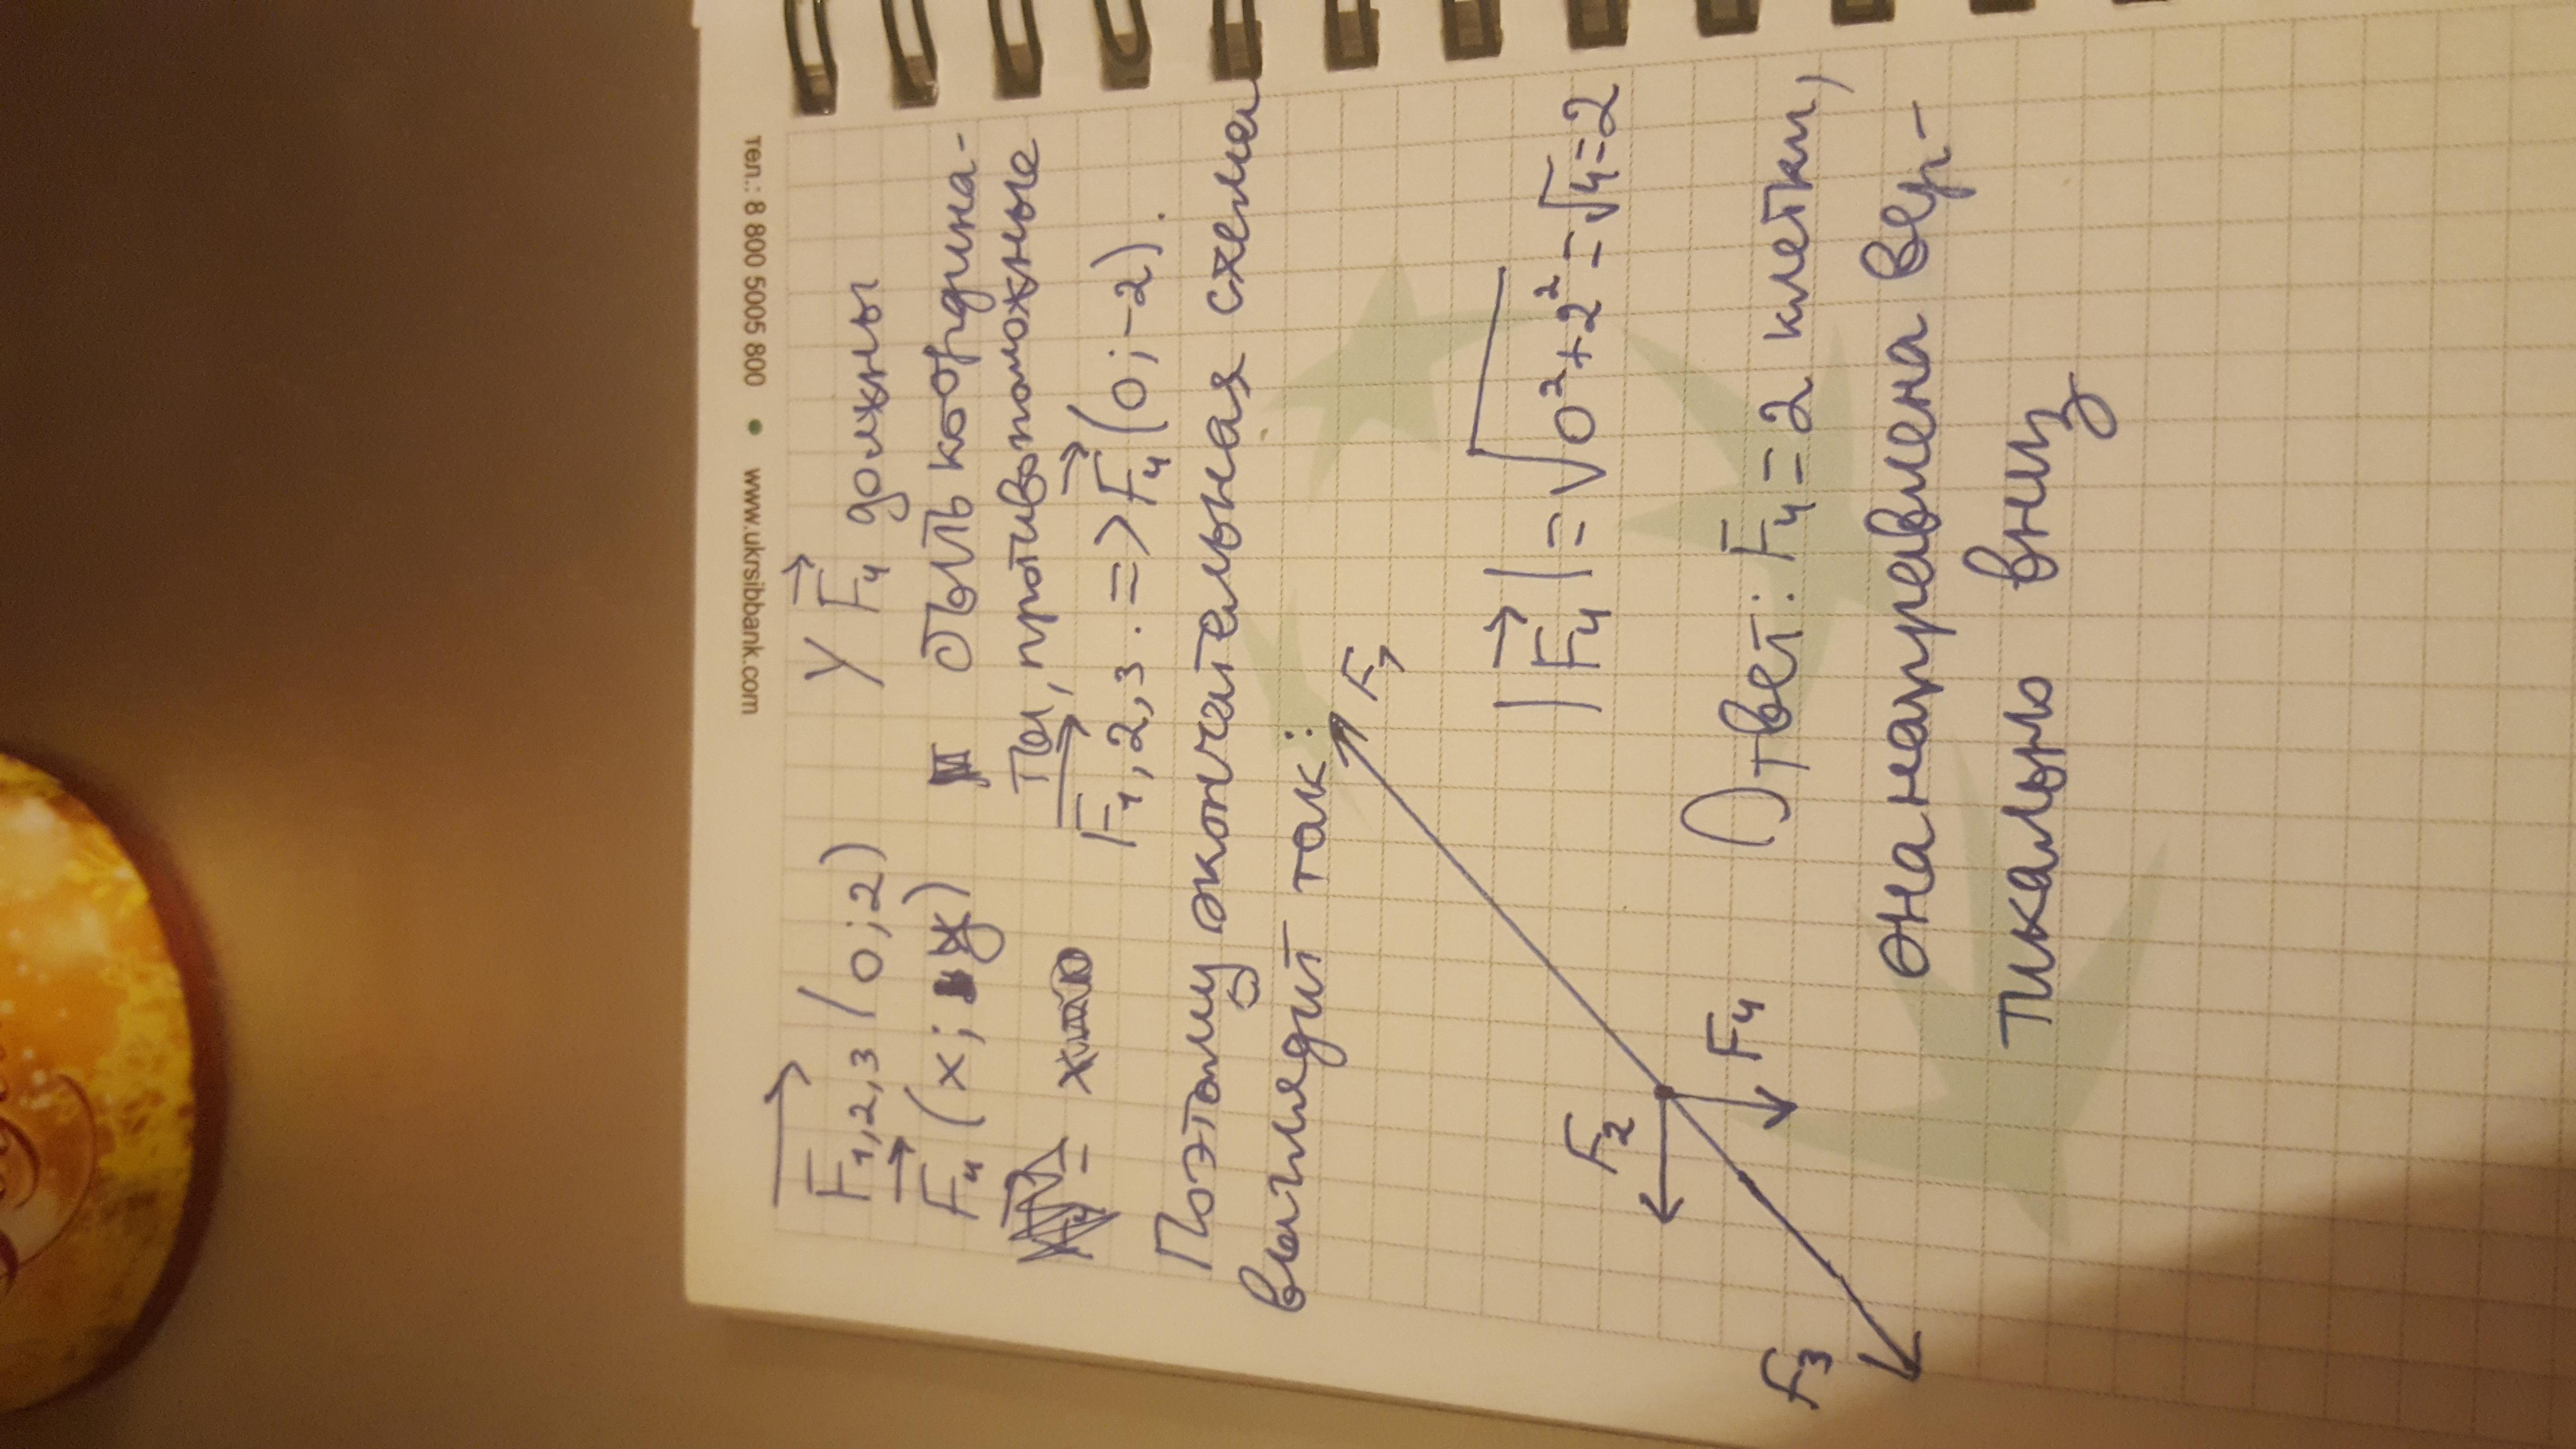 тел.: 8 800 5005 800 • www.ukrsibbank.com
F₁,₂,₃ (0; 2)
F₄ (x; y)
У F₄ должны
быть координа-
ты, противоположные
F₁,₂,₃. => F₄ (0; -2).
Поэтому окончательная схема
выглядит так:
F₁
F₂
F₄
F₃
|F₄| = √0² + 2² = √4 = 2
Ответ: F₄ = 2 клетки,
она направлена вер-
тикально вниз